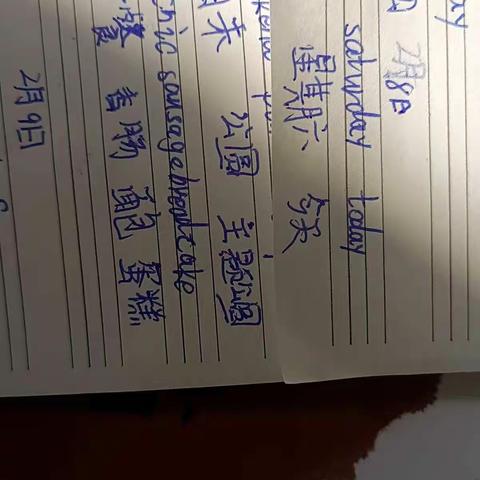 ay
2月8日
saturday today
星期六 今天
末 公园 主题公园
sausage bread cake
香肠 面包 蛋糕
2月9日